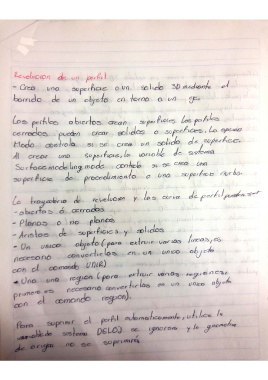 Revolucion de un perfil
- Crea una superficie o un solido 3D mediante el
barrido de un objeto en torno a un eje.
Los perfiles abiertos crean superficies, los perfiles
cerrados pueden crear solidos o superficies. La opcion
Modo controla si se crea un solido de superficie.
Al crear una superficie, la variable de sistema
Surfacemodelingmode controla si se crea una
superficie de procedimiento o una superficie nurbs.
La trayectoria de revolucion y las curva de perfil pueden ser:
- abiertas ó cerradas
- Planas o no planas
- Aristas de superficies y solidos
- Un unico objeto (para extruir varias lineas, es
necesario convertirlas en un unico objeto
con el comando UNIR)
- Una una region (para extruir varias regiones
primero es necesario convertirlas en un unico objeto
con el comando region).
Para suprimir el perfil automaticamente, utilice la
variable de sistema DELOBJ. se ignorara y la geometria
de origen no se suprimirá